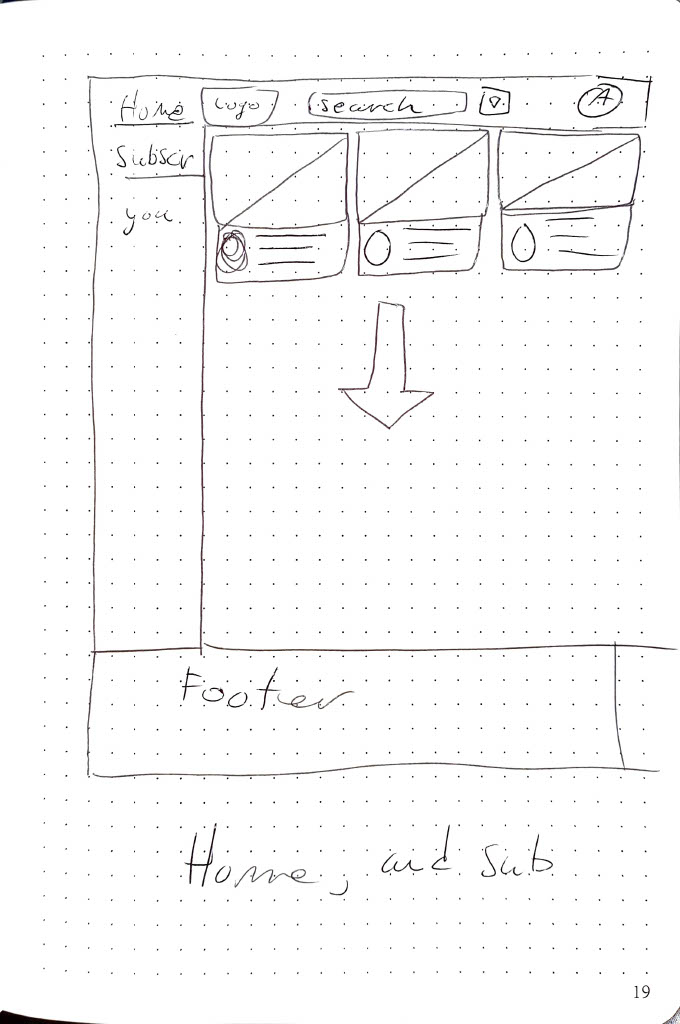 Home Logo search A
Subscr
you
Footer
Home, and sub
19